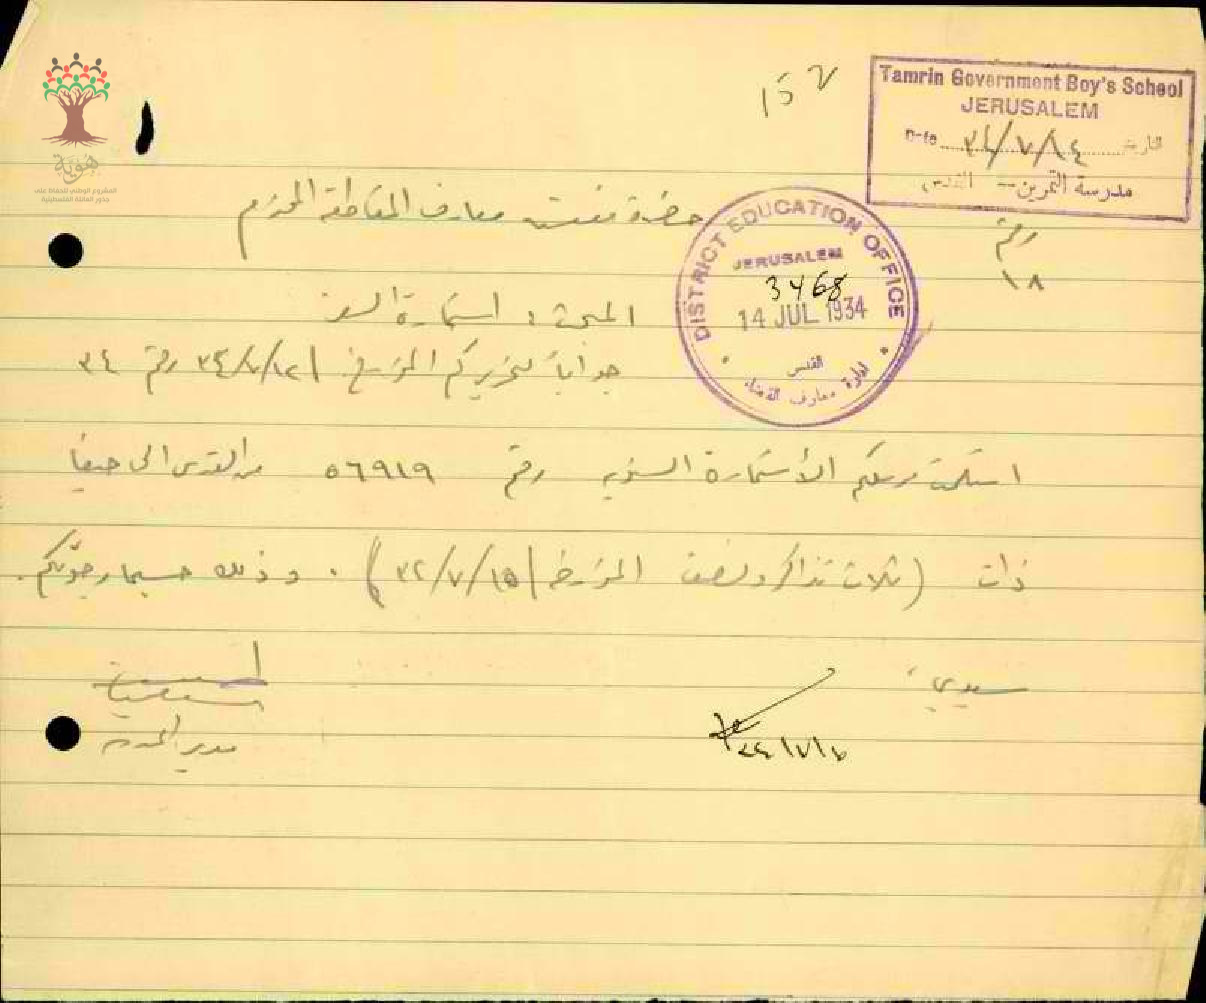 Tamrin Government Boy's School
JERUSALEM
Date ٣٤/٧/١٤ التاريخ
مدرسة التمرين – القدس
هوية
المشروع الوطني للحفاظ على
جذور العائلة الفلسطينية
حضرة مفتش معارف المقاطعة المحترم
رقم
١٨
DISTRICT EDUCATION OFFICE
JERUSALEM
3468
14 JUL 1934
القدس
ادارة معارف القضاء
المبحث : استمارة السفر
جواباً لتحريركم المؤرخ ٣٤/٧/١٢ رقم ٣٤
استلمت الأستمارة السفرية رقم ٥٦٩١٩ من القدس الى حيفا
ذات (ثلاث تذاكر ونصف المؤرخ ٣٢/٧/١٥) . وذلك حسبما رجوتكم .
سيدي ،
مدير المدرسة